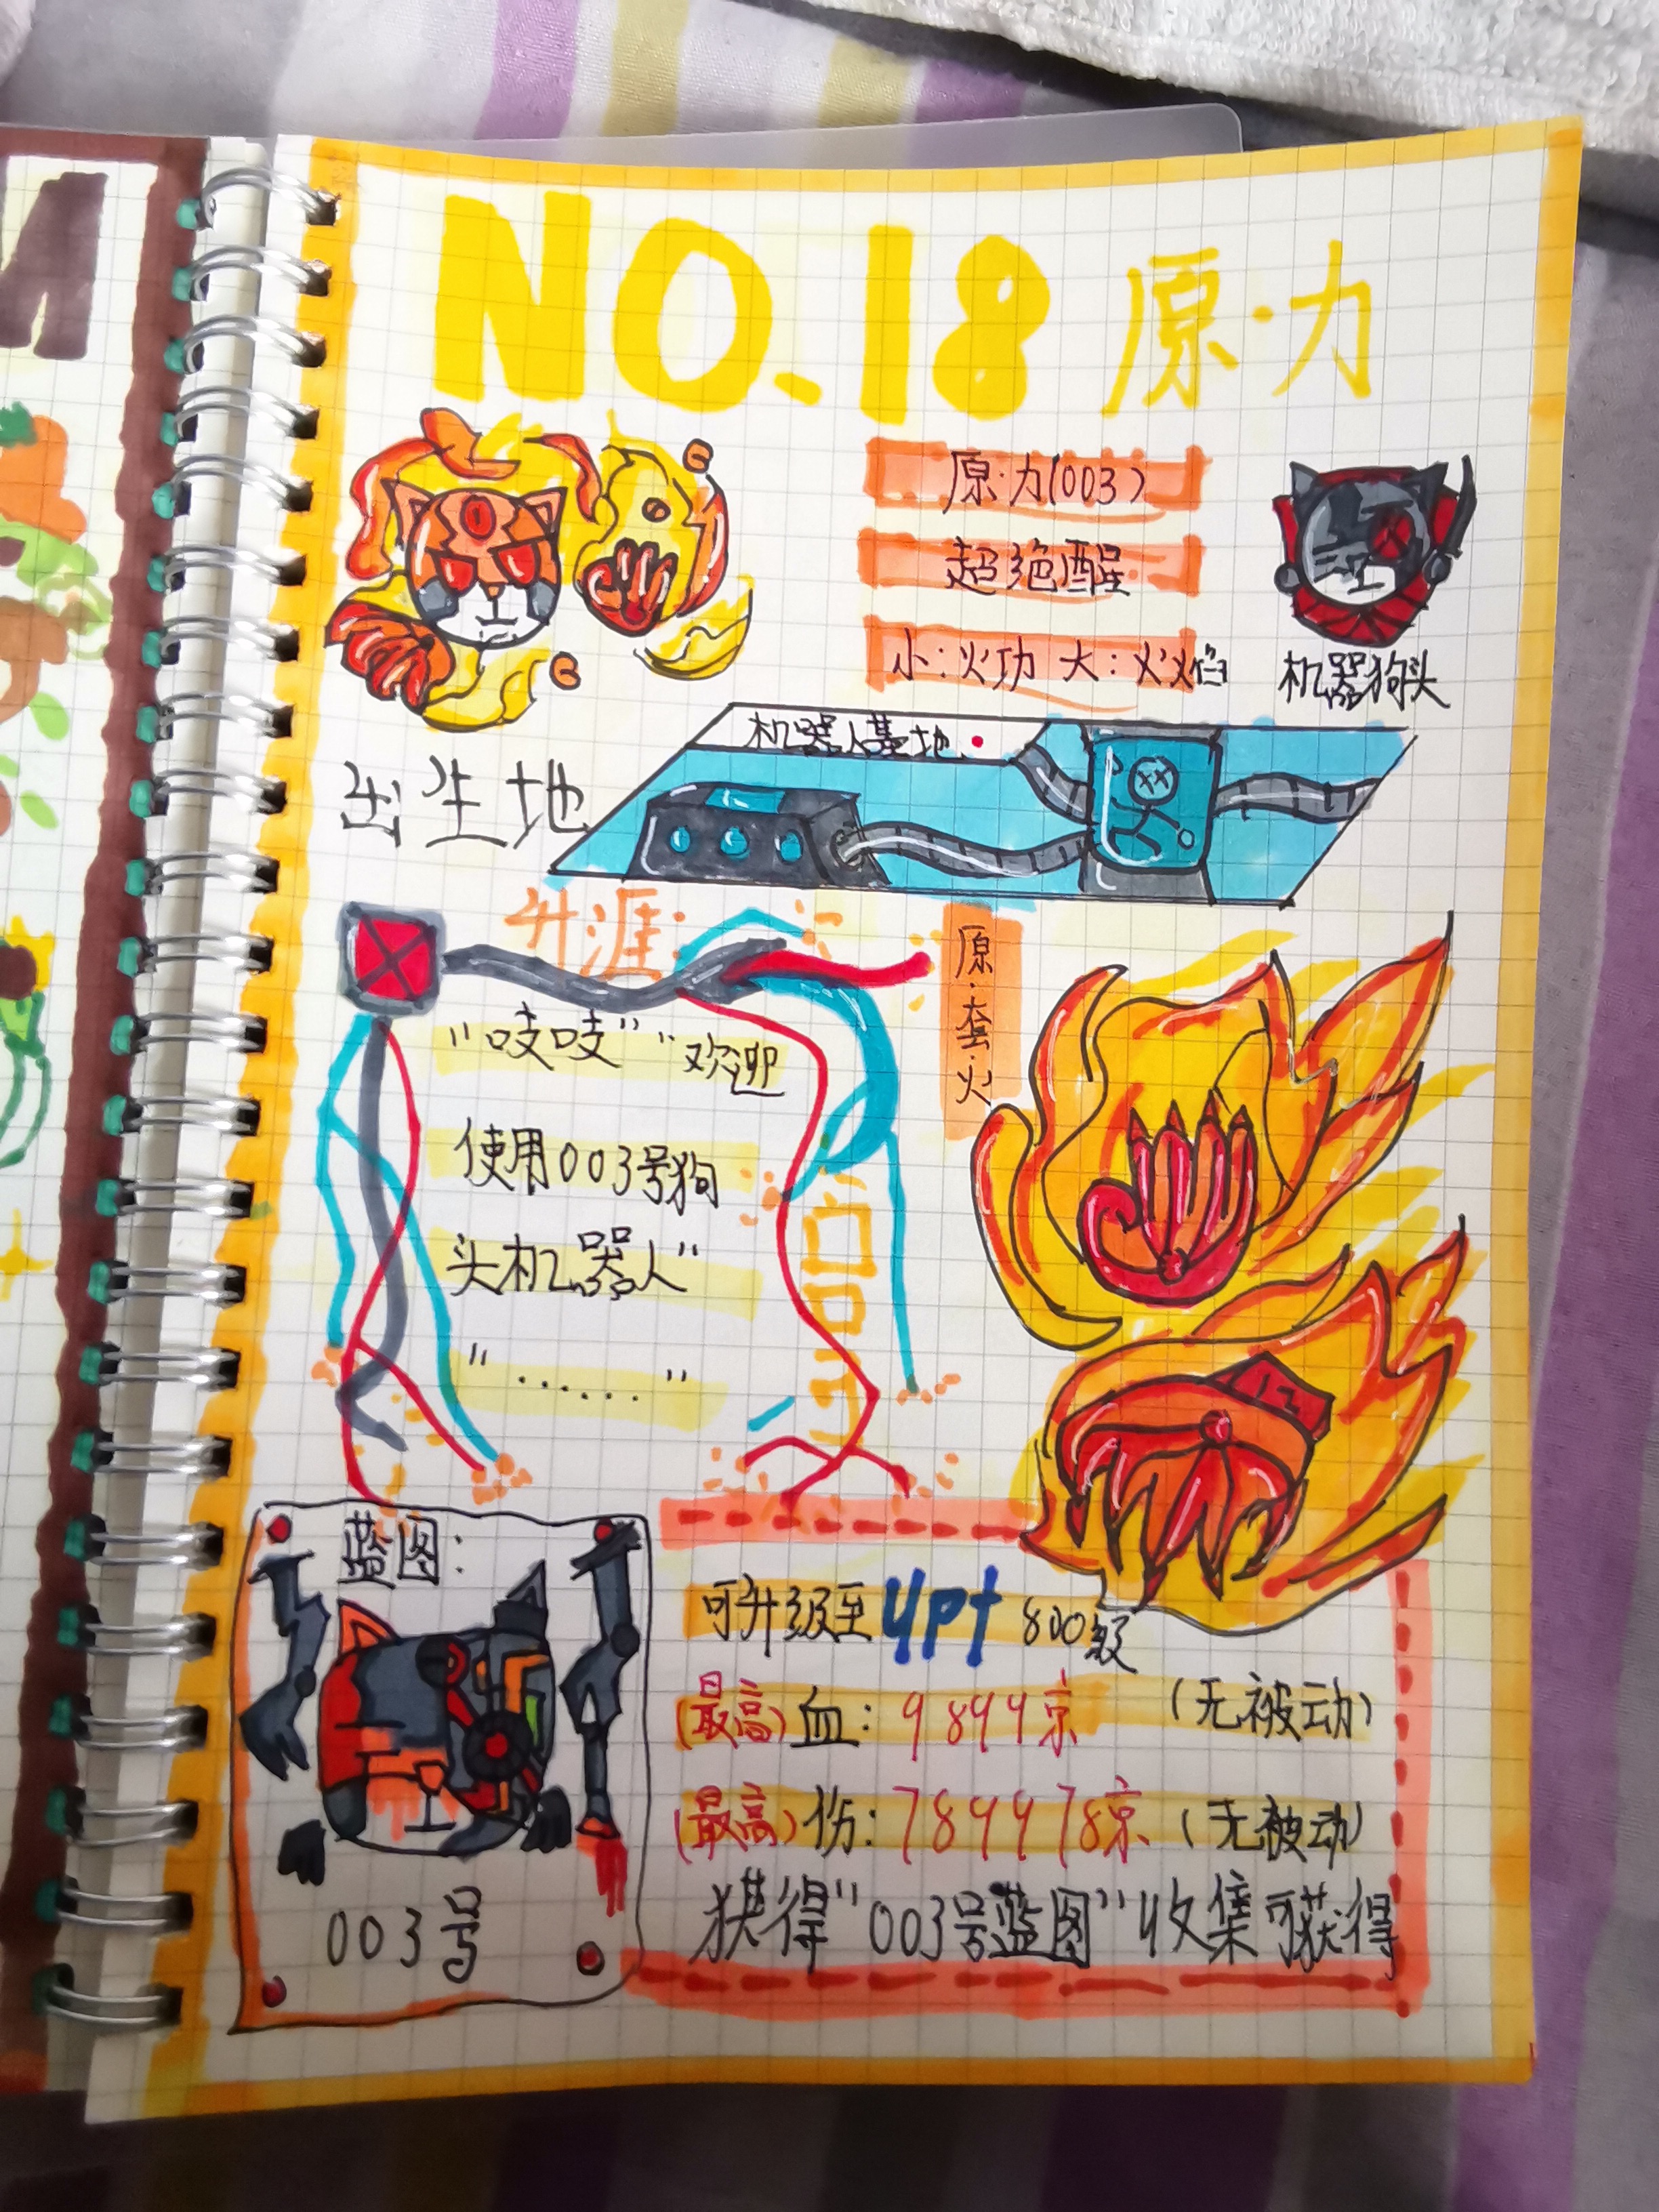 NO.18 原·力
原·力(003)
超绝醒
小:火功 大:火焰
机器狗头
出生地
机器人墓地
升涯:
原·套·火
"吱吱" "欢迎
使用003号狗
头机器人"
"······"
12
蓝图:
003号
可升级至 4pt 800级
(最高)血:9899京 (无被动)
(最高)伤:789978京 (无被动)
获得"003号蓝图"收集可获得